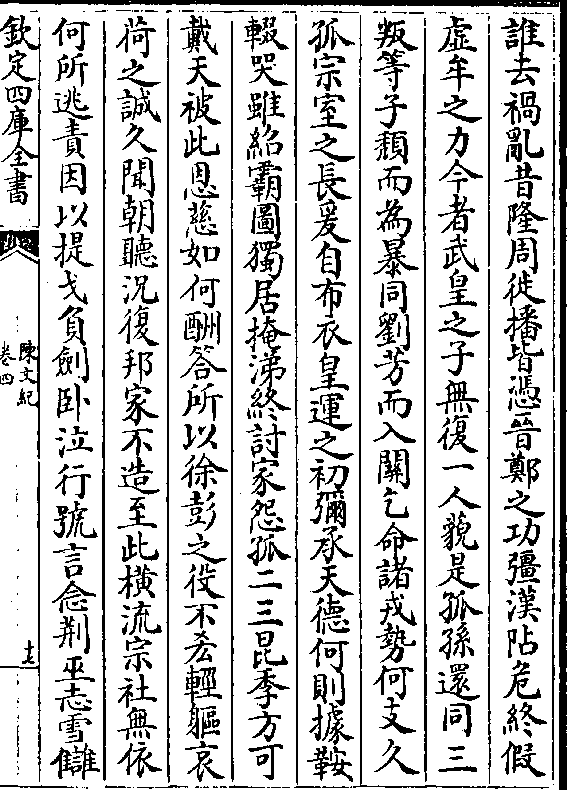 誰去禍亂昔隆周徙播皆憑晉鄭之功彊漢阽危終假
虛牟之力今者武皇之子無復一人藐是孤孫還同三
叛等子頹而為暴同劉芳而入關乞命諸戎勢何支久
孤宗室之長爰自布衣皇運之初彌承天德何則據鞍
輟哭雖紹霸圖獨居掩涕終討家怨孤二三昆季方可
戴天被此恩慈如何酬答所以徐彭之役不吝輕軀哀
荷之誠久聞朝聽況復邦家不造至此橫流宗社無依
何所逃責因以提戈負劍卧泣行號言念荆巫志雪讎
欽定四庫全書
陳文紀
卷四